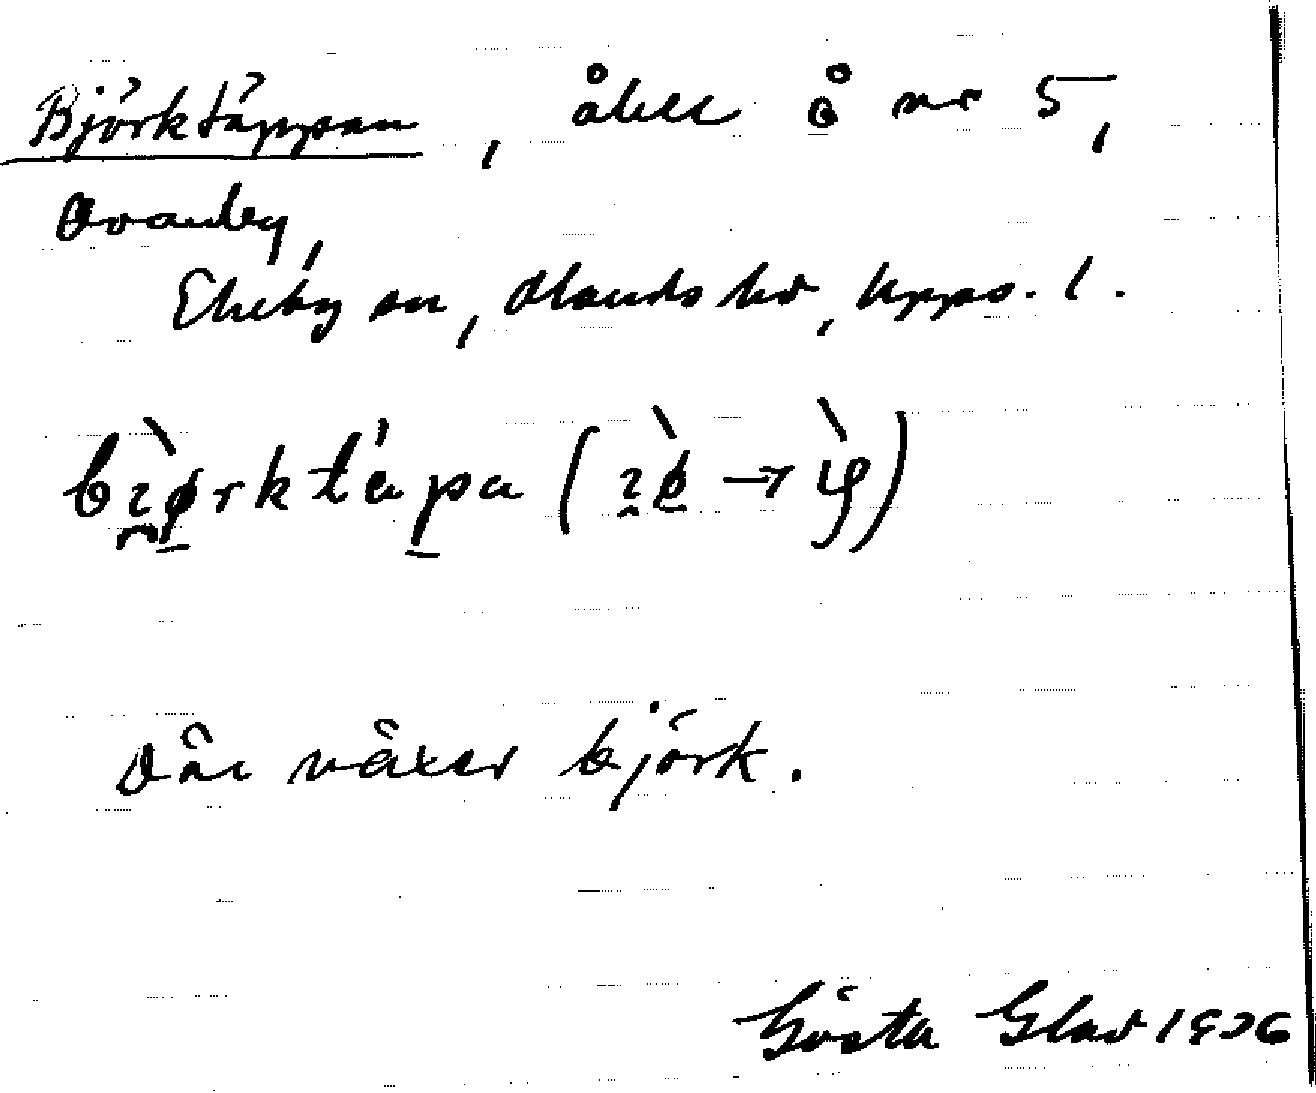 Björktäppan, åker å nr 5,
Ovanby,
Ekeby sn, Olands hd, Upps. l.
Där växer björk.
Gösta Glad 1936